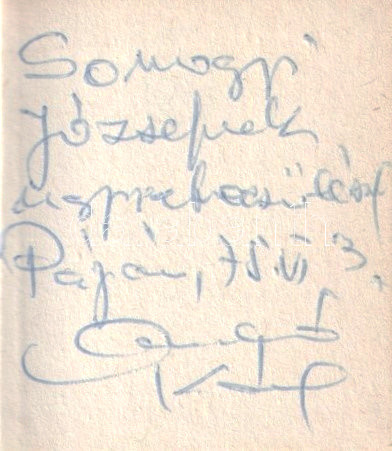 Somogyi
Józsefnek
nagyrabecsüléssel
Pápán, 75. VI 3.